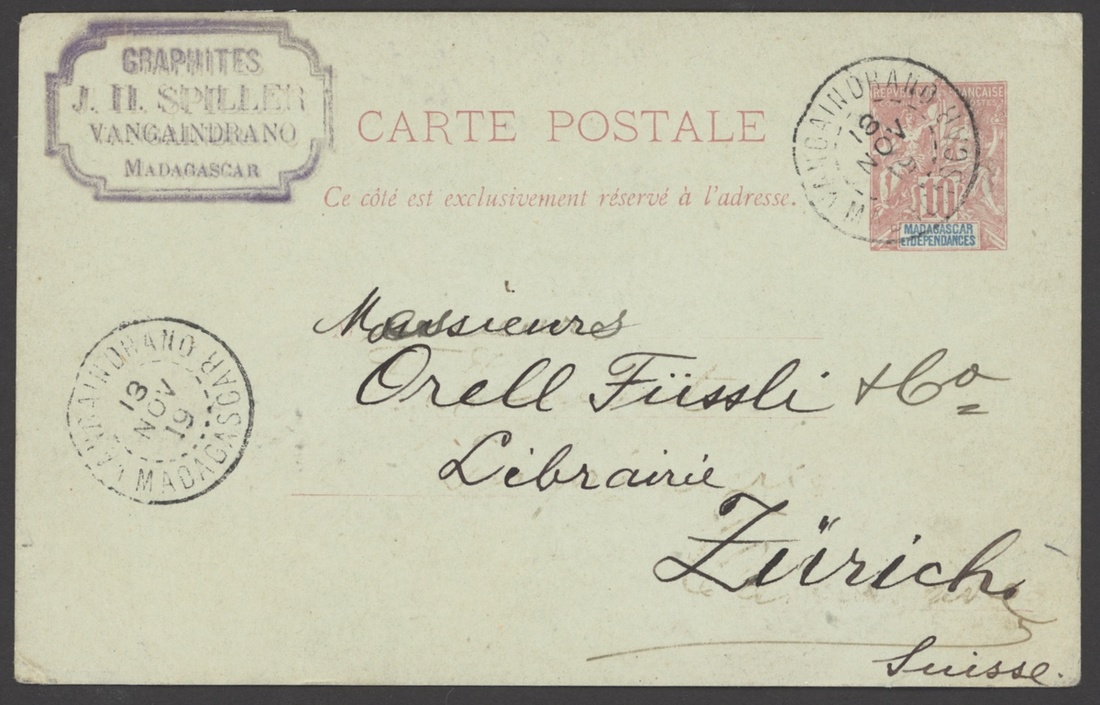 GRAPHITES
J. H. SPILLER
VANGAINDRANO
MADAGASCAR
CARTE POSTALE
Ce côté est exclusivement réservé à l'adresse.
VANGAINDRANO
18
NOV
19
RÉPUBLIQUE FRANÇAISE
POSTES
10
MADAGASCAR
ET DÉPENDANCES
Messieurs
Orell Füssli & Co
Librairie
Zürich.
Suisse.
VANGAINDRANO
MADAGASCAR
13
NOV
19